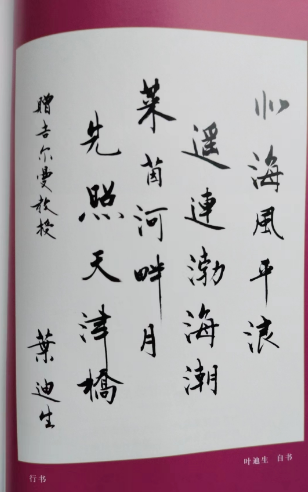 北海風平浪
遥連渤海潮
莱茵河畔月
先照天津橋
贈吉尔曼教授
葉迪生
叶迪生 自书
行书